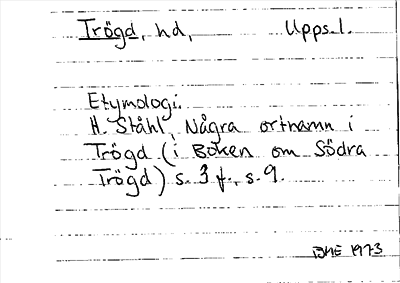 Trögd, hd, Upps.l.
Etymologi.
H. Ståhl, Några ortnamn i
Trögd (i Boken om Södra
Trögd) s. 3 f., s. 9.
1973